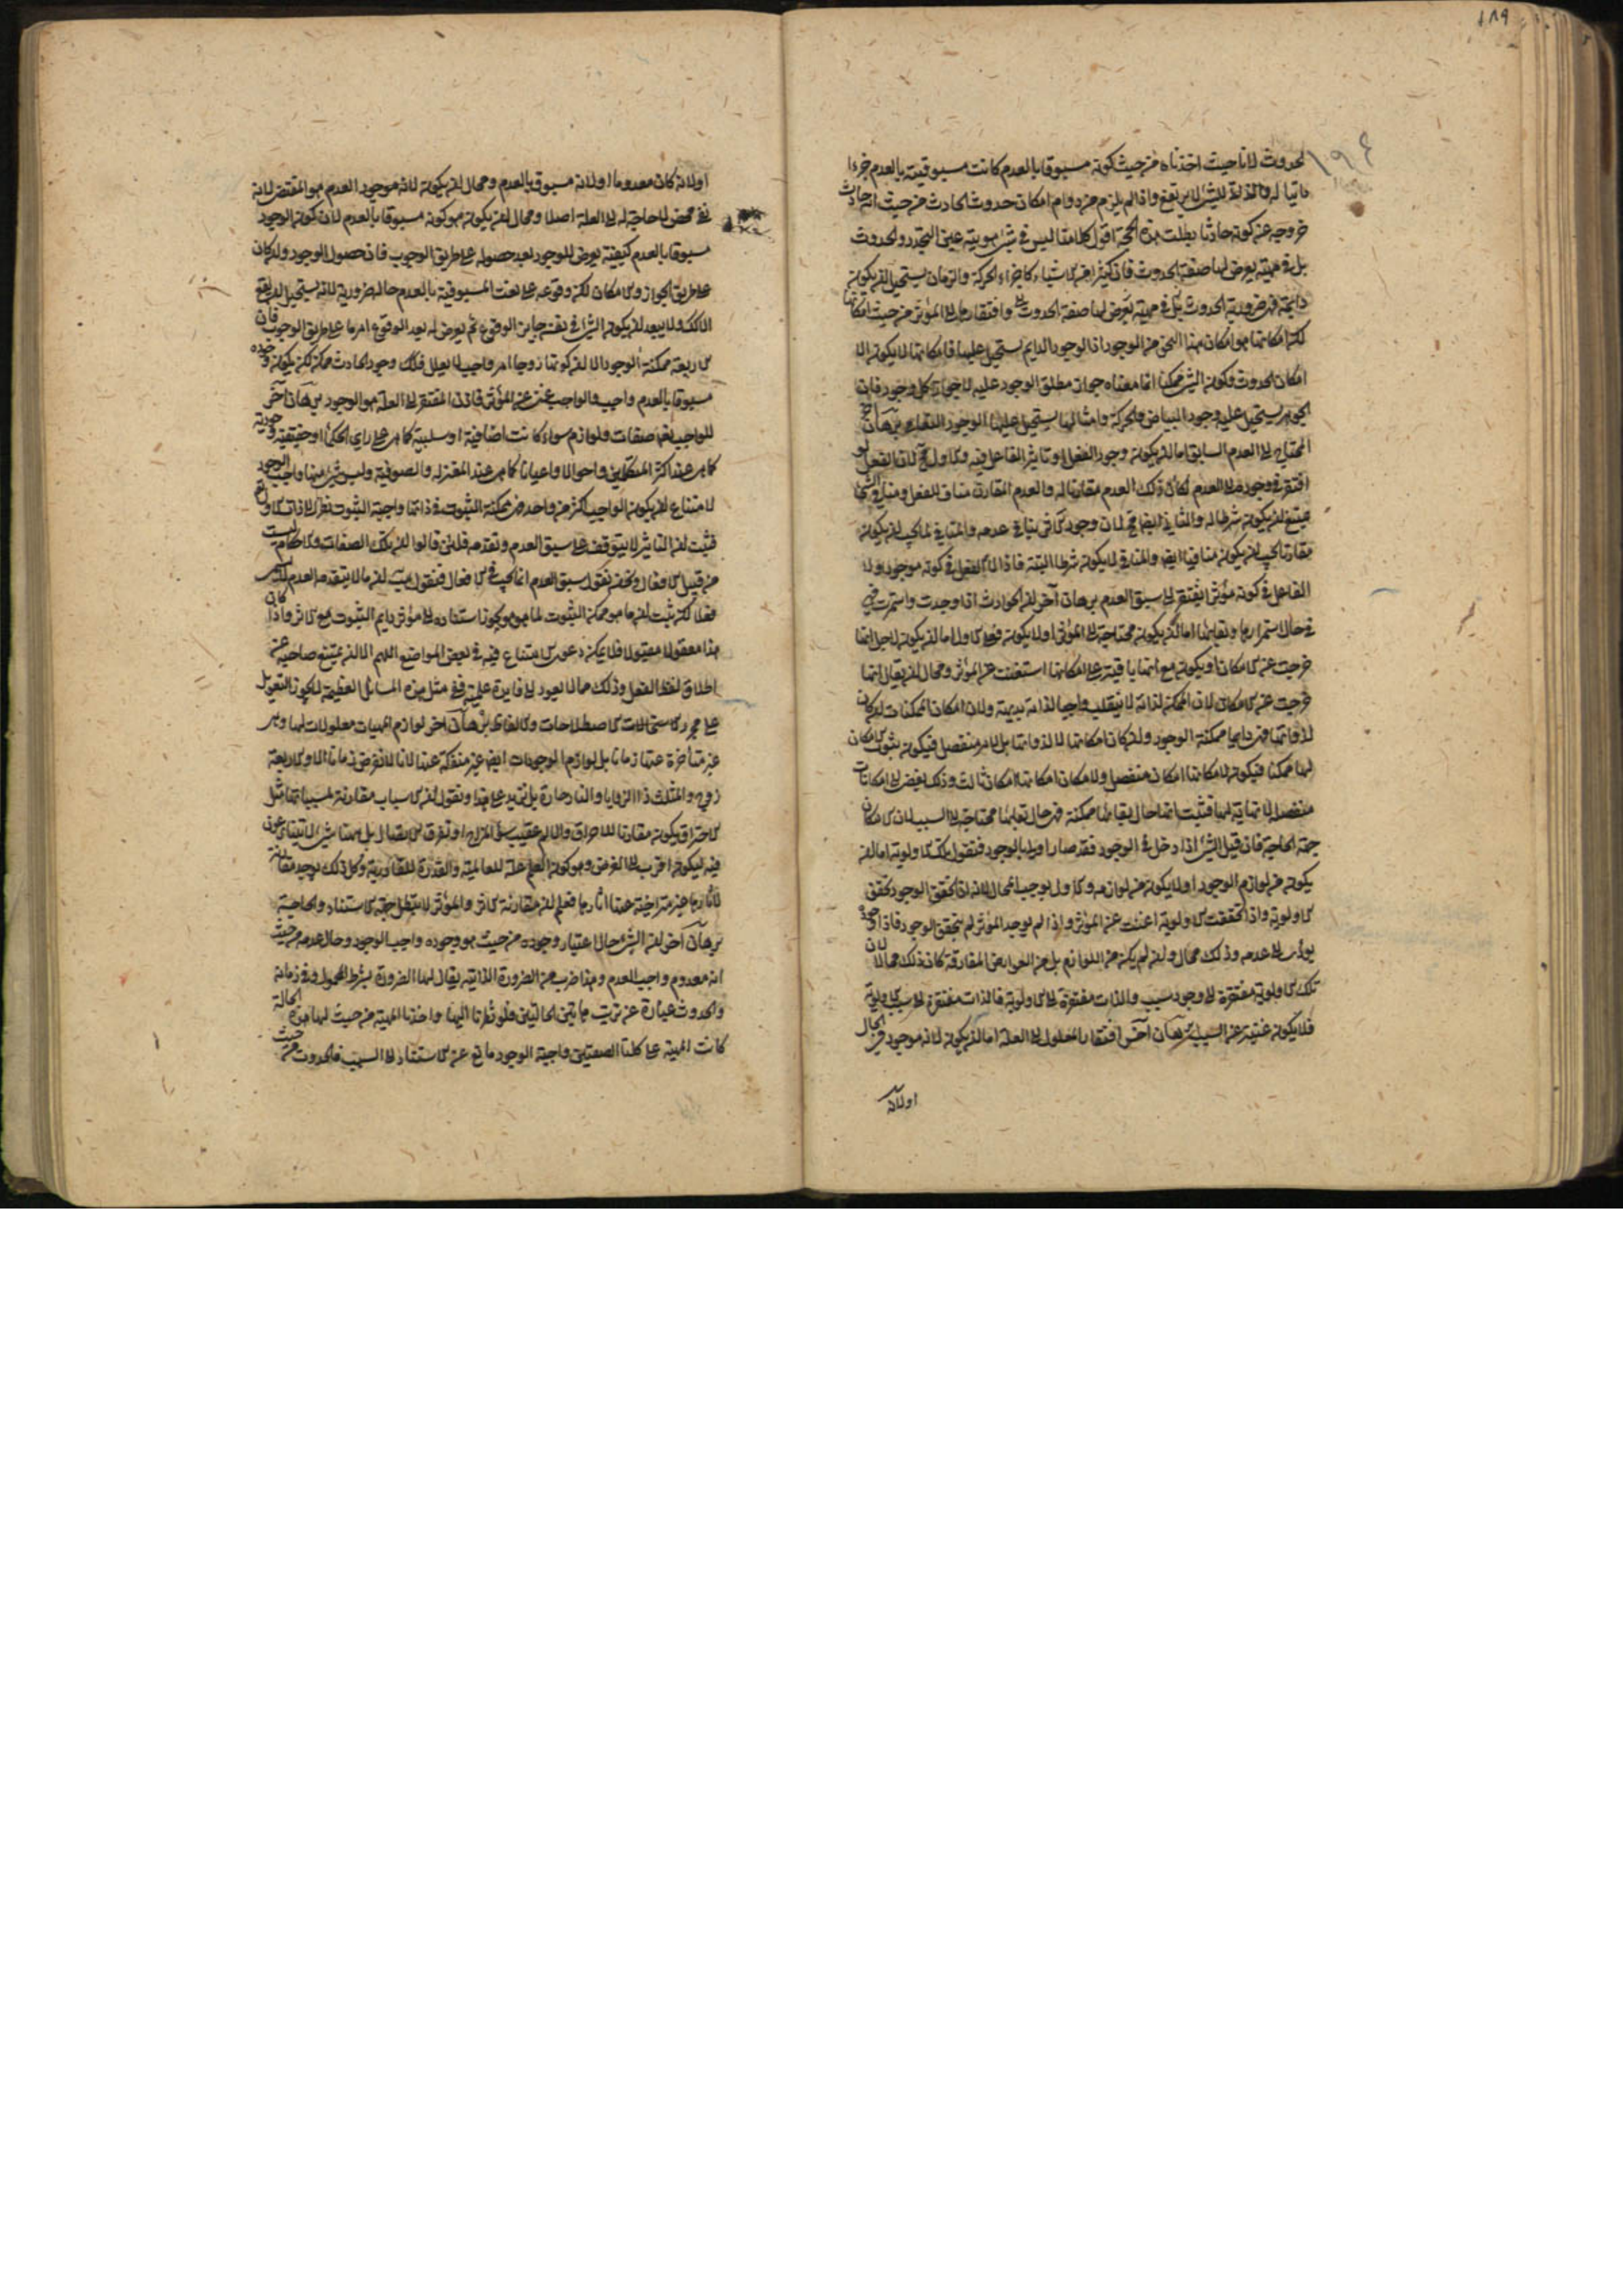 ١٨٩
١٩٤
الحدوث لانا حيث اخذناه من حيث كونه مسبوقا بالعدم كانت مسبوقيته بالعدم جزءا
ذاتيا له والذاتي للشيء لا يرتفع واذا لم يلزم من دوام امكان حدوث الحادث من حيث انه حادث
خروجه عن كونه حادثا بطلت هذه الحجة اقول كلامنا ليس في شيء هويته عين التجدد والحدوث
بل في مهية يعرض لها صفة الحدوث فان كثيرا من الاشياء كاجزاء الحركة والزمان يستحيل ان يكون
دايمة فهي ضرورية الحدوث بل في مهية يعرض لها صفة الحدوث وافتقارها الى المؤثر من حيث امكانها
لكن امكانها هو امكان هذا النحو من الوجود اذ الوجود الدايم يستحيل عليها فامكانها لا يكون الا
امكان الحدوث وكون الشيء ممكنا انما معناه جواز مطلق الوجود عليه لا جواز كل وجود فان
الجوهر يستحيل عليه وجود البياض والحركة وامثالها يستحيل عليها الوجود البقاء برهان آخر
المحتاج الى العدم السابق اما ان يكون وجود الفعل او تاثير الفاعل فيه والاول مح لان الفعل لو
افتقر في وجوده الى العدم لكان ذلك العدم مقارنا له والعدم المقارن مناف للفعل ومنافي الشيء
يمتنع ان يكون شرطا له والثاني ايضا مح لان وجود الاثر ينافي عدمه والمنافي لما يجب ان يكون
مقارنا يجب ان يكون منافيا ايضا والمنافي لا يكون شرطا البتة فاذا لا الفعل في كونه موجودا ولا
الفاعل في كونه مؤثرا يفتقر الى سبق العدم برهان آخر ان الحوادث اذا وجدت واستمرت فهي
في حال استمرارها وبقائها اما ان يكون محتاجة الى المؤثر او لا يكون فعلى الاول اما ان يكون لاجل انها
خرجت عن الامكان او يكون مع انها باقية على امكانها استغنت عن المؤثر ومحال ان يقال انها
خرجت عن الامكان لان الممكن لذاته لا ينقلب واجبا لذاته بديهة ولان امكان الممكنات ان كان
لذواتها فهي دايما ممكنة الوجود وان كان امكانها لا لذواتها بل لامر منفصل فيكون ثبوت الامكان
لها ممكنا فيكون لامكانها امكان منفصل ولامكان امكانها امكان ثالث وذلك يفضي الى امكانات
منفصلة لا نهاية لها فثبت انها حال بقائها ممكنة فهي حال بقائها محتاجة الى السبب لان الامكان
جهة الحاجة فان قيل الشيء اذا دخل في الوجود فقد صار اولى بالوجود فنقول تلك الاولوية اما ان
يكون من لوازم الوجود او لا يكون من لوازمه والاول يوجب المحال لانه اذا تحقق الوجود تحقق
الاولوية واذا تحققت الاولوية اغنت عن المؤثر واذا لم يوجد المؤثر لم يتحقق الوجود فاذا وجوده
يؤدي الى عدمه وذلك محال وان لم يكن من اللوازم بل من العوارض المفارقة كان ذلك محالا لان
تلك الاولوية مفتقرة الى وجود سبب والذات مفتقرة الى الاولوية فالذات مفتقرة الى سبب الاولوية
فلا يكون غنية عن السبب برهان آخر افتقار المعلول الى العلة اما ان يكون لانه موجود في الحال
اولانه
اولانه كان معدوما اولانه مسبوق بالعدم ومحال ان يكون لانه موجود العدم هو المقتضي لانه
نفي محض لا حاجة له الى العلة اصلا ومحال ان يكون هو كونه مسبوقا بالعدم لان كون الوجود
مسبوقا بالعدم كيفية يعرض للوجود بعد حصوله على طريق الوجوب فان حصول الوجود وان كان
على طريق الجواز والامكان لكن وقوعه على نعت المسبوقية بالعدم حالة ضرورية لانه يستحيل ان يقع
الا كذلك ولا يبعد ان يكون الشيء في نفسه جايز الوقوع ثم يعرض له بعد الوقوع امر ما على طريق الوجوب فان
الاربعة ممكنة الوجود الا ان كونها زوجا امر واجب لا يعلل فكذلك وجود الحادث ممكن لكن يكون وجوده
مسبوقا بالعدم واجب والواجب غني عن المؤثر فاذن المفتقر الى العلة هو الوجود برهان آخر
للواجب تعالى صفات ولوازم سواء كانت اضافية او سلبية كما هي على راي الحكماء او حقيقية وجودية
كما هي عند اكثر المتكلمين واحوالا واعيانا كما هي عند المعتزلة والصوفية وليس شيء منها واجب الوجود
لامتناع ان يكون الواجب اكثر من واحد فهي ممكنة الثبوت في ذواتها واجبة الثبوت نظرا الى ذات الاول تع
فثبت ان التاثير لا يتوقف على سبق العدم وتقدمه فلئن قالوا ان تلك الصفات والاحكام ليست
من قبيل الافعال ونحن نقول سبق العدم انما يجب في الافعال فنقول هب ان ما لا يتقدمه العدم لا يسمى
فعلا لكن ثبت ان ما هو ممكن الثبوت لما هو هو يجوز استناده الى مؤثر دايم الثبوت مع الاثر واذا كان
هذا معقولا مقبولا فلا يمكن دعوى الامتناع فيه في بعض المواضع اللهم الا ان يمتنع صاحبه عن
اطلاق لفظ الفعل وذلك مما لا يعود الى فايدة علمية في مثل هذه المسائل العظيمة لا يجوز التعويل
على مجرد الاستحالات الاصطلاحات والالفاظ برهان آخر لوازم المهيات معلولات لها وهي
غير متاخرة عنها زمانا بل لوازم الوجودات ايضا غير منفكة عنها لانا لا نفرض زمانا الا والاربعة
زوج والمثلث ذا الزوايا والنار حارة بل نزيد على هذا ونقول ان الاسباب مقارنة لمسبباتها مثل
الاحتراق يكون مقارنا للاحراق والالم عقيب سوء المزاج او تفرق الاتصال بل هيهنا شيء لا يتنازعون
فيه ليكون اقرب الى الغرض وهو كون العلم علة للعالمية والقدرة للقادرية وكل ذلك يوجد مقارنة
لآثارها غير متراخية عنها آثارها فعلم ان مقارنة الاثر والمؤثر لا يبطل جهة الاستناد والحاجة
برهان آخر ان الشيء حال اعتبار وجوده من حيث هو وجوده واجب الوجود وحال عدمه من حيث
انه معدوم واجب العدم وهذا ضرب من الضرورة الذاتية يقال لها الضرورة بشرط المحمول وفي زمانه
والحدوث عبارة عن ترتب هاتين الحالتين فلو نظرنا اليها واخذنا المهية من حيث لها هذه الحالة
كانت المهية على كلتا الصفتين واجبة الوجود مانع عن الاستناد الى السبب فالحدوث من حيث